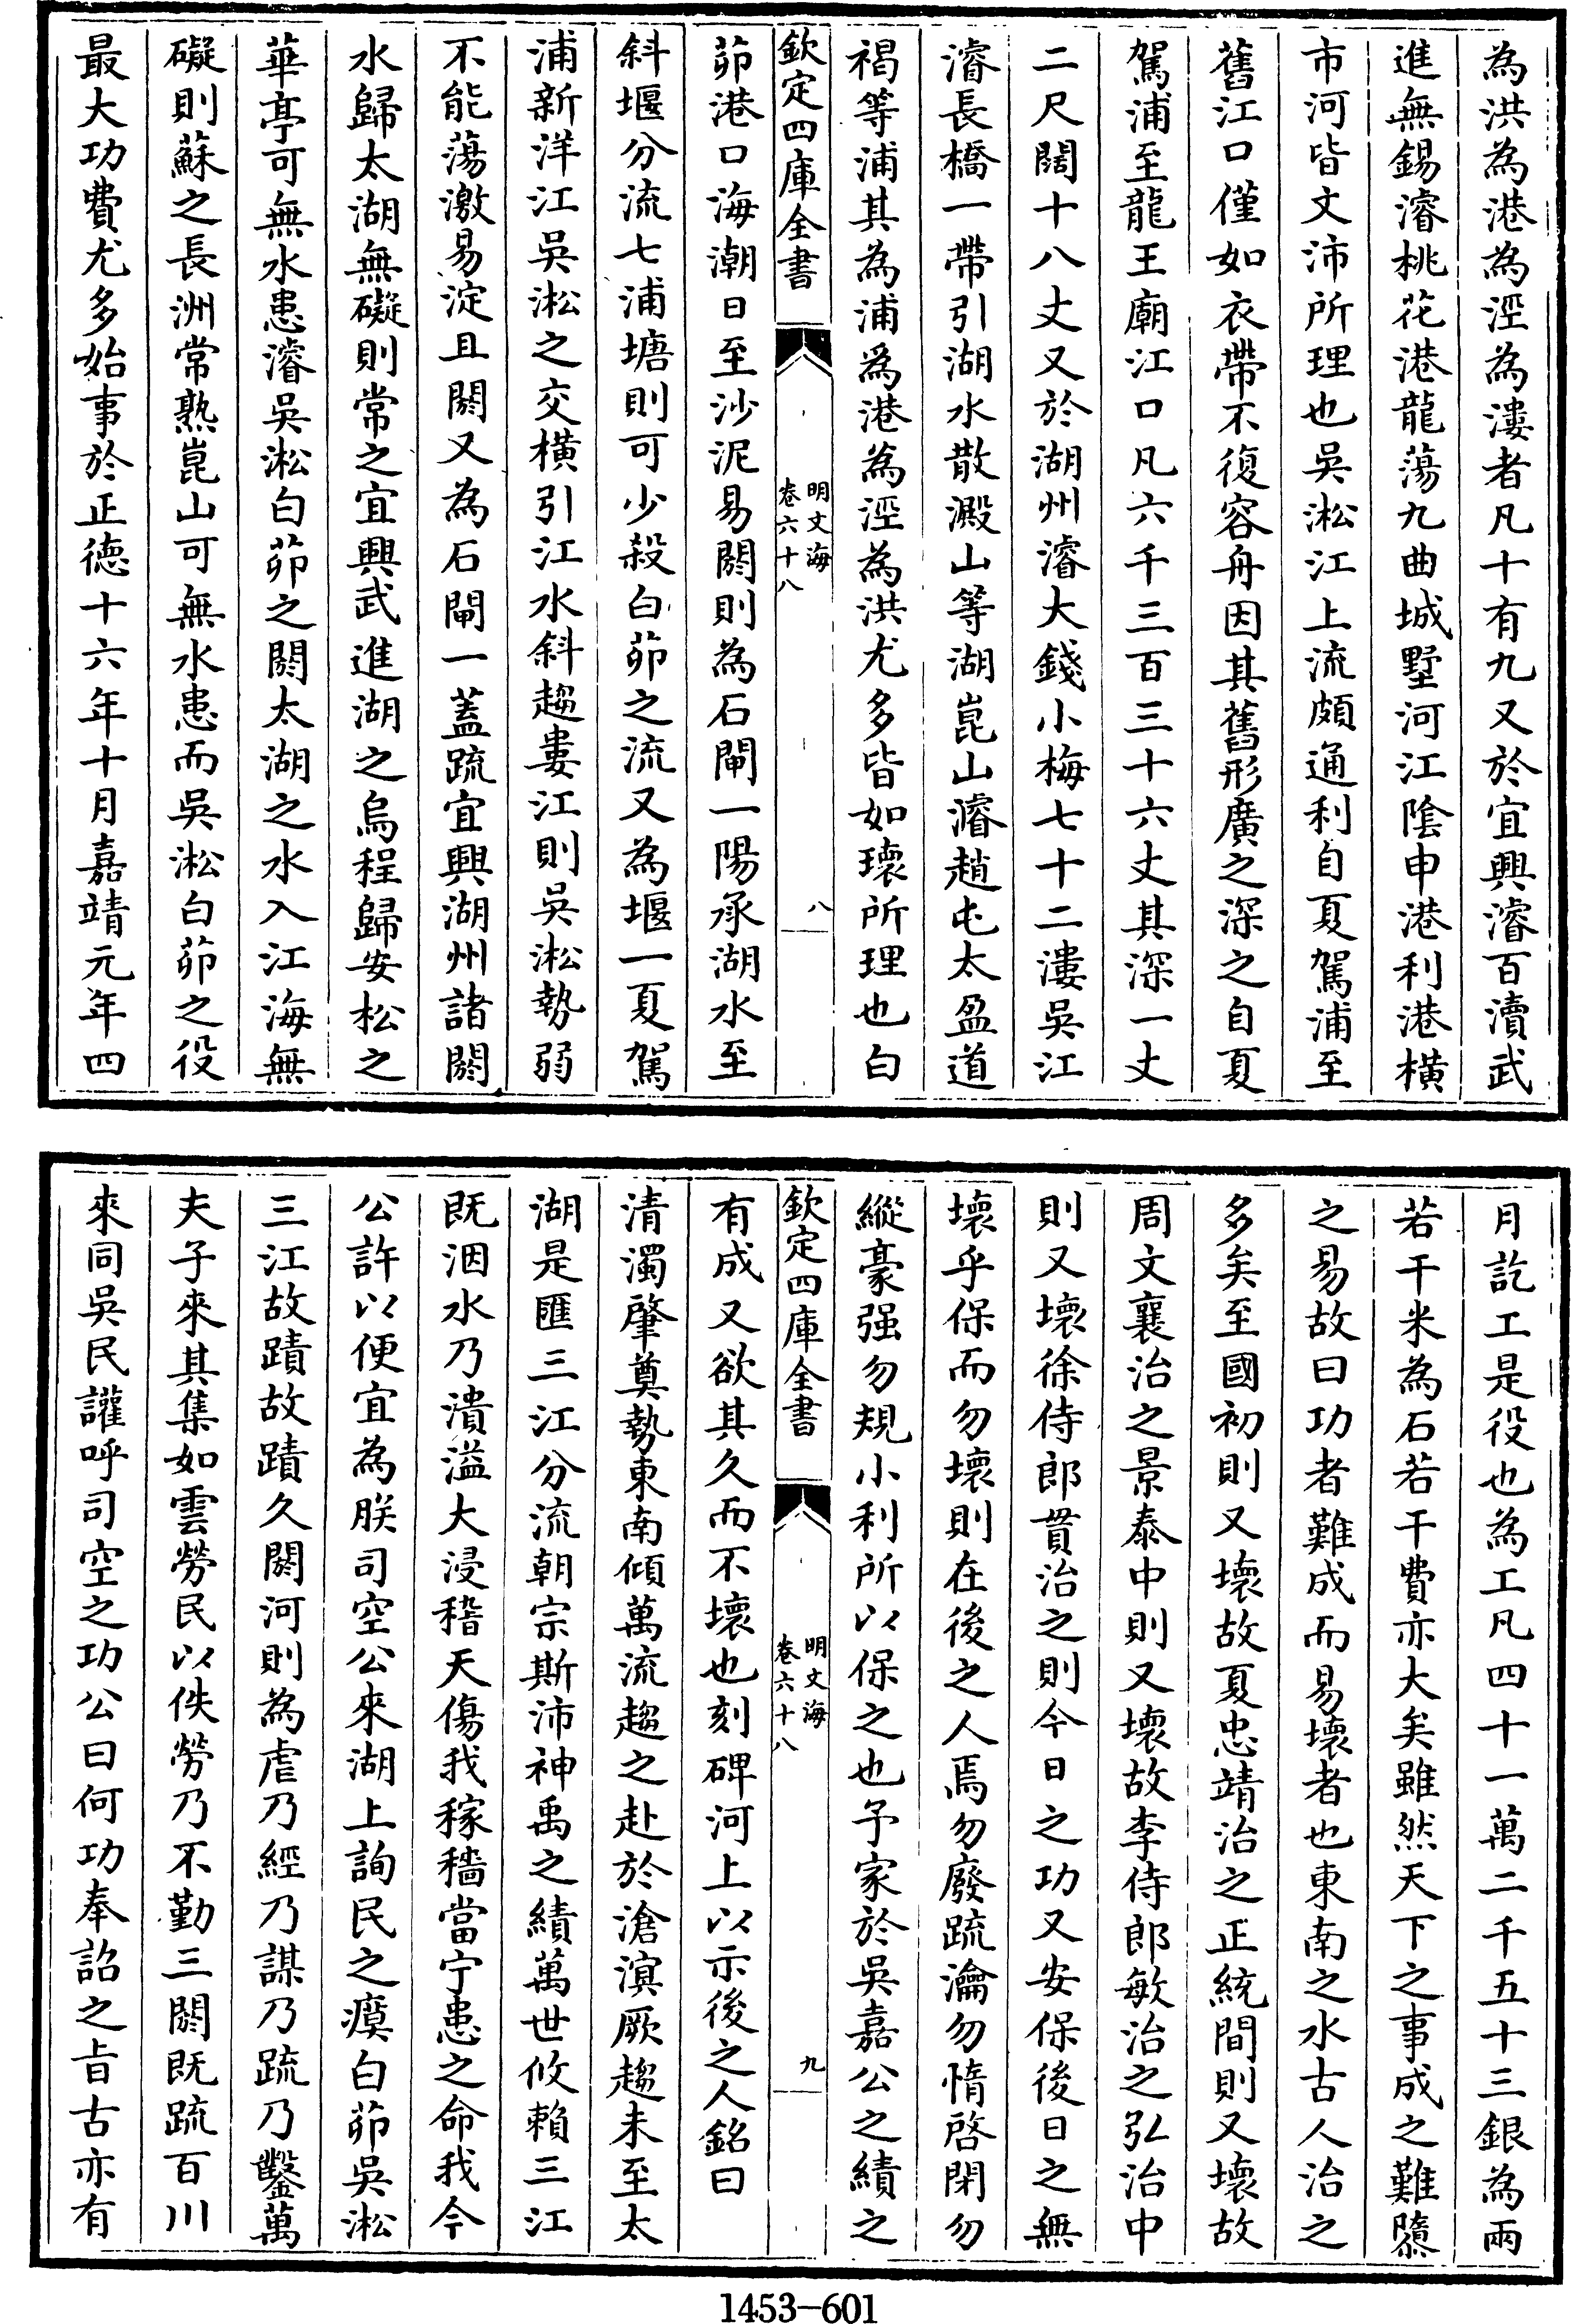 為洪為港為涇為漊者凡十有九又於宜興濬百瀆武
進無錫濬桃花港龍蕩九曲城墅河江陰申港利港橫
市河皆文沛所理也吳淞江上流頗通利自夏駕浦至
舊江口僅如衣帶不復容舟因其舊形廣之深之自夏
駕浦至龍王廟江口凡六千三百三十六丈其深一丈
二尺闊十八丈又於湖州濬大錢小梅七十二漊吳江
濬長橋一帶引湖水散澱山等湖崑山濬趙屯太盈道
褐等浦其為浦爲港為涇為洪尤多皆如瓌所理也白
欽定四庫全書
明文海
卷六十八
八
茆港口海潮日至沙泥易閼則為石閘一陽承湖水至
斜堰分流七浦塘則可少殺白茆之流又為堰一夏駕
浦新洋江吳淞之交橫引江水斜趨婁江則吳淞勢弱
不能蕩激易淀且閼又為石閘一蓋疏宜興湖州諸閼
水歸太湖無礙則常之宜興武進湖之烏程歸安松之
華亭可無水患濬吳淞白茆之閼太湖之水入江海無
礙則蘇之長洲常熟崑山可無水患而吳淞白茆之役
最大功費尤多始事於正德十六年十月嘉靖元年四
月訖工是役也為工凡四十一萬二千五十三銀為兩
若干米為石若干費亦大矣雖然天下之事成之難隳
之易故曰功者難成而易壞者也東南之水古人治之
多矣至國初則又壞故夏忠靖治之正統間則又壞故
周文襄治之景泰中則又壞故李侍郎敏治之弘治中
則又壞徐侍郎貫治之則今日之功又安保後日之無
壞乎保而勿壞則在後之人焉勿廢疏瀹勿惰啓閉勿
縱豪强勿規小利所以保之也予家於吳嘉公之績之
欽定四庫全書
明文海
卷六十八
九
有成又欲其久而不壞也刻碑河上以示後之人銘曰
清濁肇奠勢東南傾萬流趨之赴於滄溟厥趨未至太
湖是匯三江分流朝宗斯沛神禹之績萬世攸賴三江
既洇水乃潰溢大浸稽天傷我稼穡當宁患之命我今
公許以便宜為朕司空公來湖上詢民之瘼白茆吳淞
三江故蹟故蹟久閼河則為虐乃經乃謀乃疏乃鑿萬
夫子來其集如雲勞民以佚勞乃不勤三閼既疏百川
來同吳民讙呼司空之功公曰何功奉詔之旨古亦有
1453-601